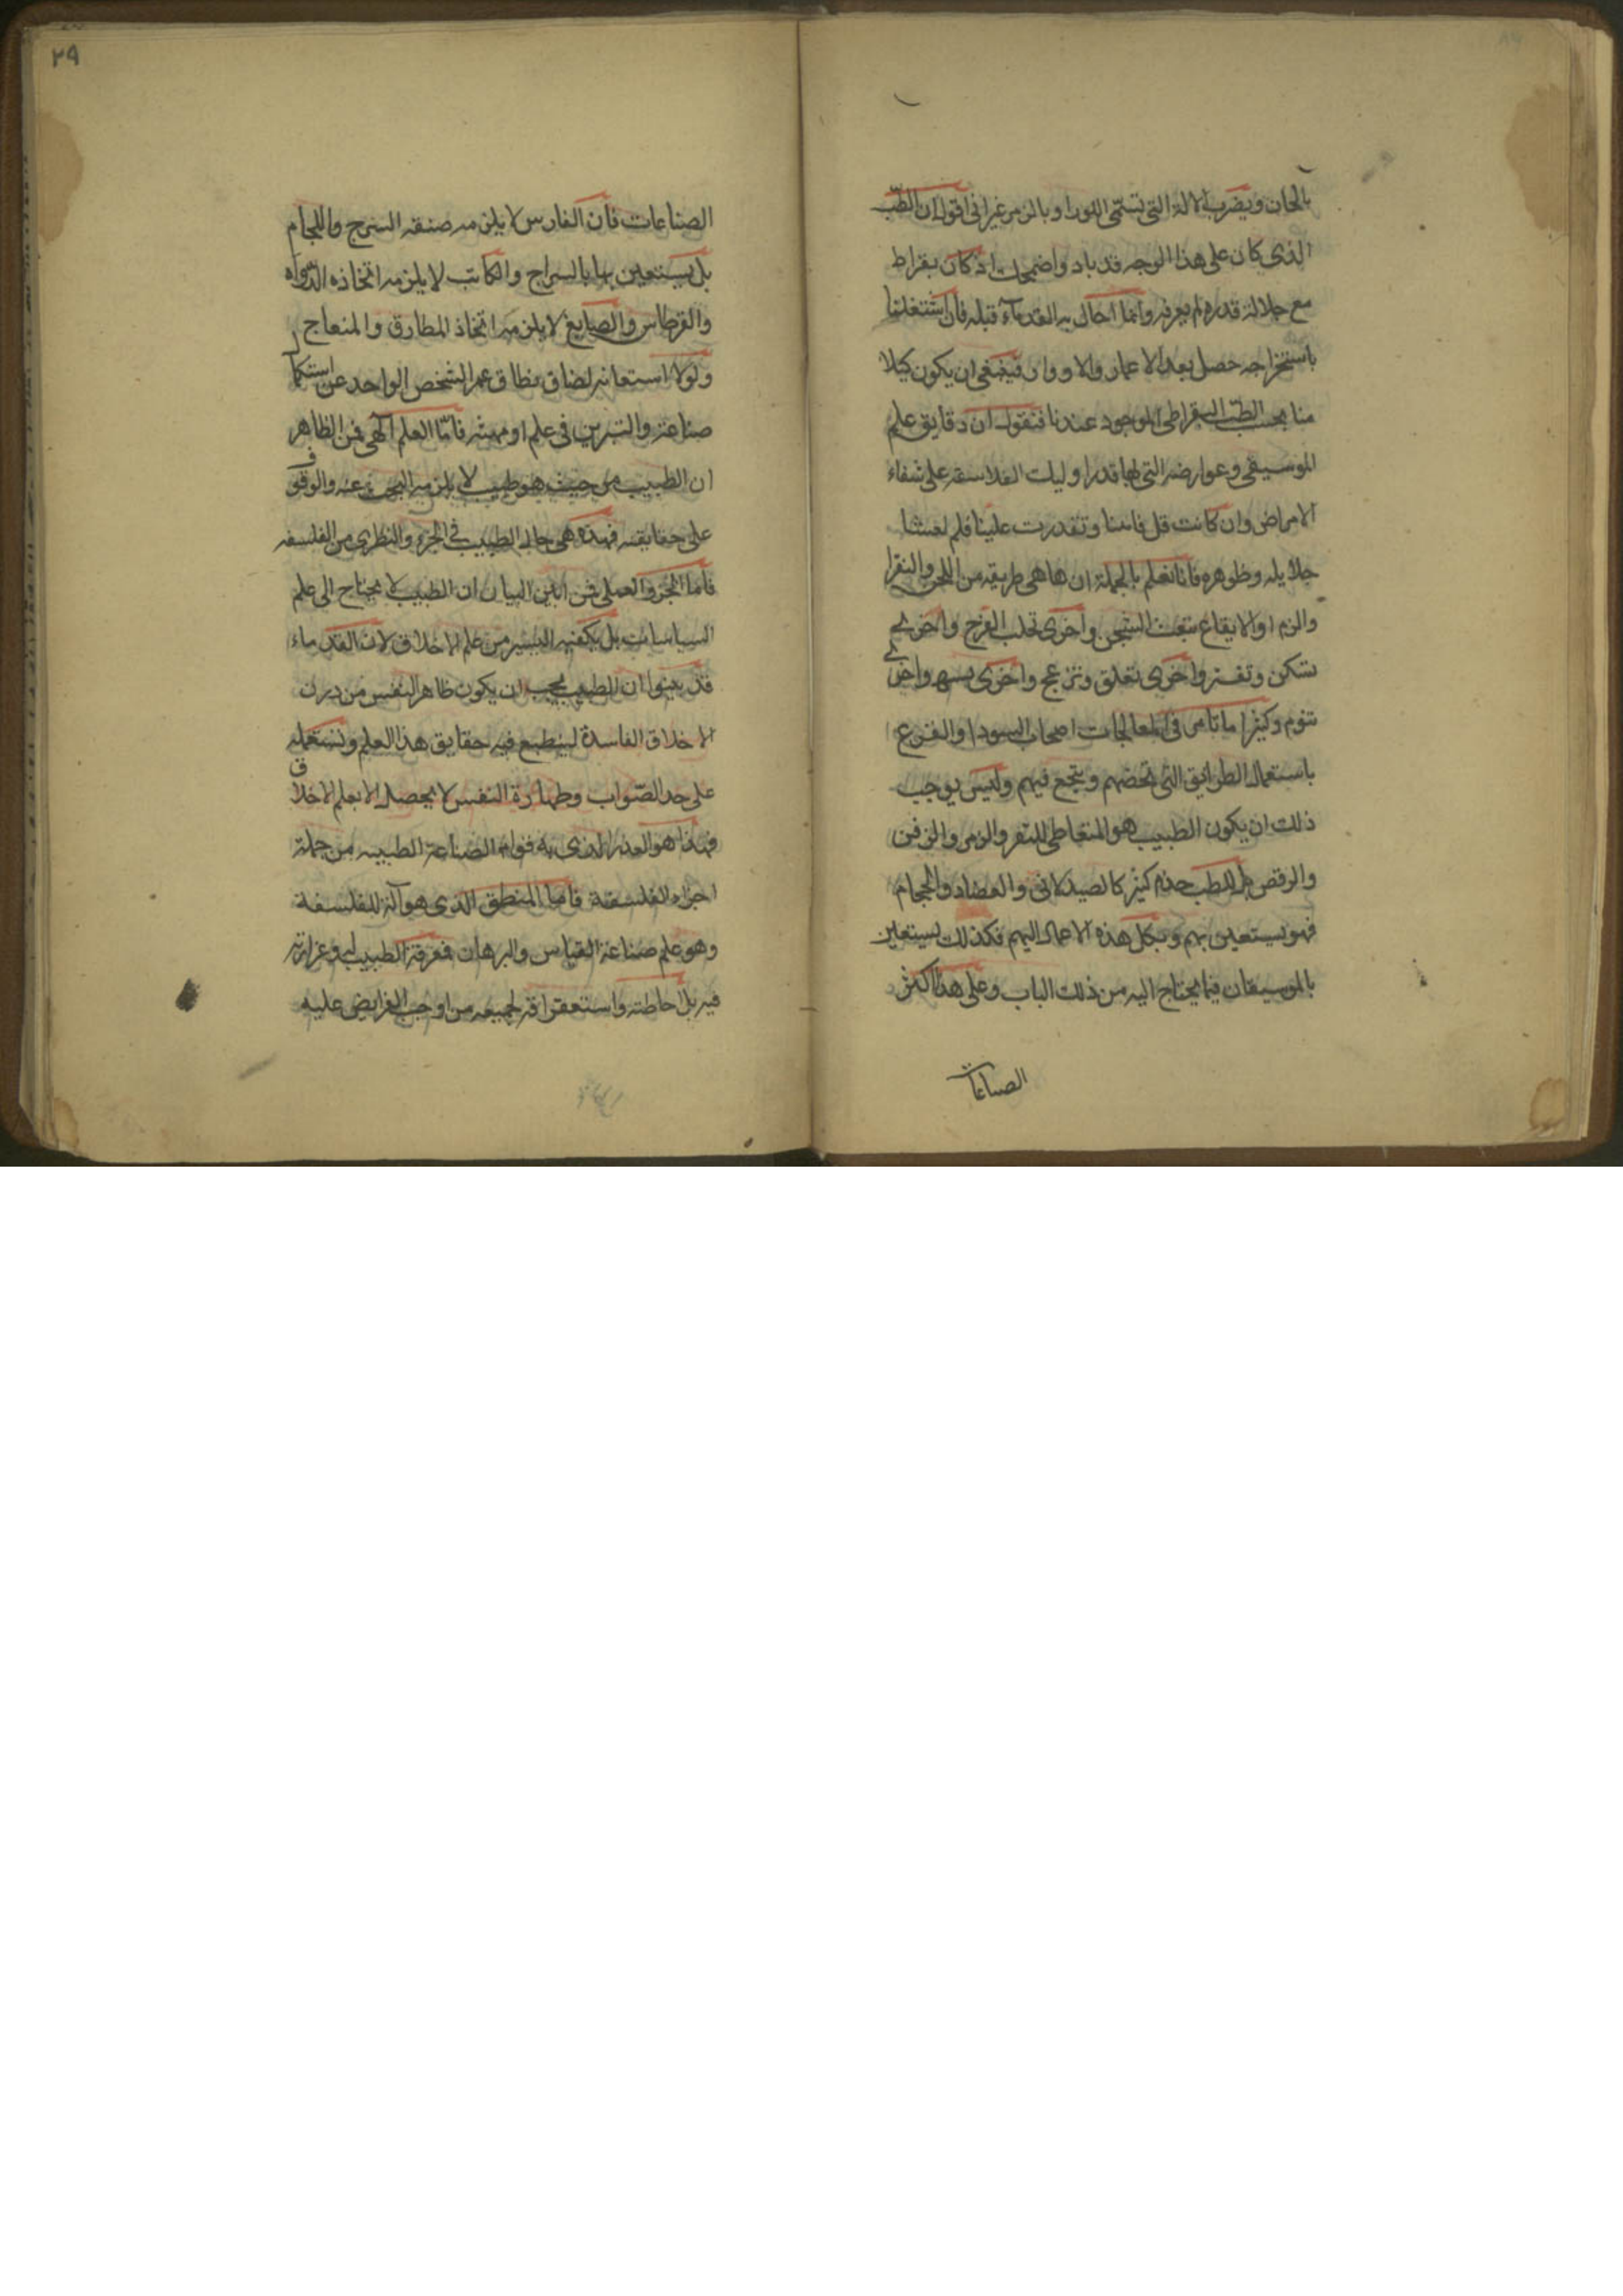 بالحان ويضرب الالة التى تسمّى اللورا وبالزمر غير انى اقول ان الطبّ
الذى كان على هذا الوجه قد باد واضمحل اذ كان بقراط
مع جلالة قدره لم يعرفه وانما احال به القدماء قبله فان اشتغلنا
باستخراجه حصل بعد الاعمار والادوار فينبغى ان يكون
منا بحسب الطبّ البقراطى الموجود عندنا فنقول ان دقايق علم
الموسيقى وعوارضه التى بها قدر اوليك الفلاسفه على شفاء
الامراض وان كانت قد فاتتنا وتعذرت علينا فلم
جلايله وظواهره فانا نعلم بالجملة ان هاهى طريقه من اللحن والنقرا
والزمر والايقاع تبعث الشجن واخرى تجلب الفرح واخرى
تسكن وتفتر واخرى تقلق وتزعج واخرى تسهر واخرى
تنوم وكثيرا ما نامر فى المعالجات اصحاب السودا والفزع
باستعمال الطرايق التى تخصهم وينجع فيهم وليس يوجب
ذلك ان يكون الطبيب هو المتعاطى للنقر والزمر والزفن
والرقص بل للطب خدم كثير كالصيدلانى والفصاد والحجام
فهو يستعين بهم ويكل هذه الاعمال اليهم فكذلك يستعين
بالموسيقار فيما يحتاج اليه من ذلك الباب وعلى هذا اكثر
الصناعات
٢٩
الصناعات فان الفارس لا يلزمه صنعة السرج واللجام
بل يستعين بها بالسراج والكاتب لا يلزمه اتخاذه الدواه
والقرطاس والصايغ لا يلزمه اتخاذ المطارق والمنفاج
ولولا استعانته لضاق نطاق عمر الشخص الواحد عن استكمال
صناعة والتبريز فى علم او مهنة فامّا العلم الالهى فمن الظاهر
ان الطبيب من حيث هو طبيب لا يلزمه البحث عنه والوقوف
على حقايقه فهذه هى حال الطبيب فى الجزء والنظرى من الفلسفه
فاما الجزو العملى فمن ابين البيان ان الطبيب لا يحتاج الى علم
السياسات بل يكفيه اليسير من علم الاخلاق لان القدماء
قد بينوا ان الطبيب يجب ان يكون طاهر النفس من درن
الاخلاق الفاسدة لينطبع فيه حقايق هذا العلم ونستعمله
على حد الصّواب وطهارة النفس لا يحصل الا بعلم الاخلاق
فهذا هو القدر الذى به قوام الصناعة الطبيه من جملة
اجزاء الفلسفة فاما المنطق الذى هو آلة للفلسفة
وهو علم صناعة القياس والبرهان فمعرفة الطبيب به وغزارته
فيه بل احاطته واستغراقه لجميعه من اوجب الفرايض عليه